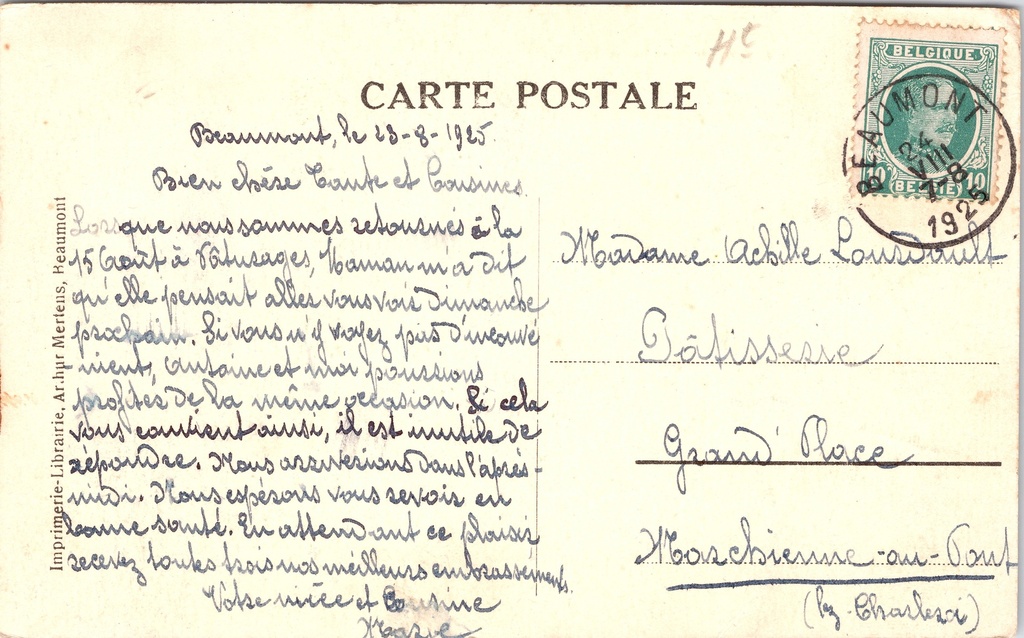 CARTE POSTALE
Beaumont, le 23-8-1925.
Bien chère Tante et Cousines.
Lorsque nous sommes retournés à la
15 Août à Nâtusages, Maman m'a dit
qu'elle pensait aller vous voir dimanche
prochain. Si vous n'y voyez pas d'inconvé
nient, Antoine et moi pourrions
profiter de la même occasion. Si cela
vous convient ainsi, il est inutile de
répondre. Nous arriverions dans l'après-
midi. Nous espérons vous revoir en
bonne santé. En attendant ce plaisir
recevez toutes trois nos meilleurs embrassements.
Votre nièce et Cousine
Marie
Imprimerie-Librairie, Arthur Mertens, Beaumont
Hc
BELGIQUE
10 BELGIË 10
BEAUMONT
24
VIII
7-8
1925
Madame Achille
Pâtisserie
Grand' Place
Marchienne-au-Pont
(lz-Charleroi)